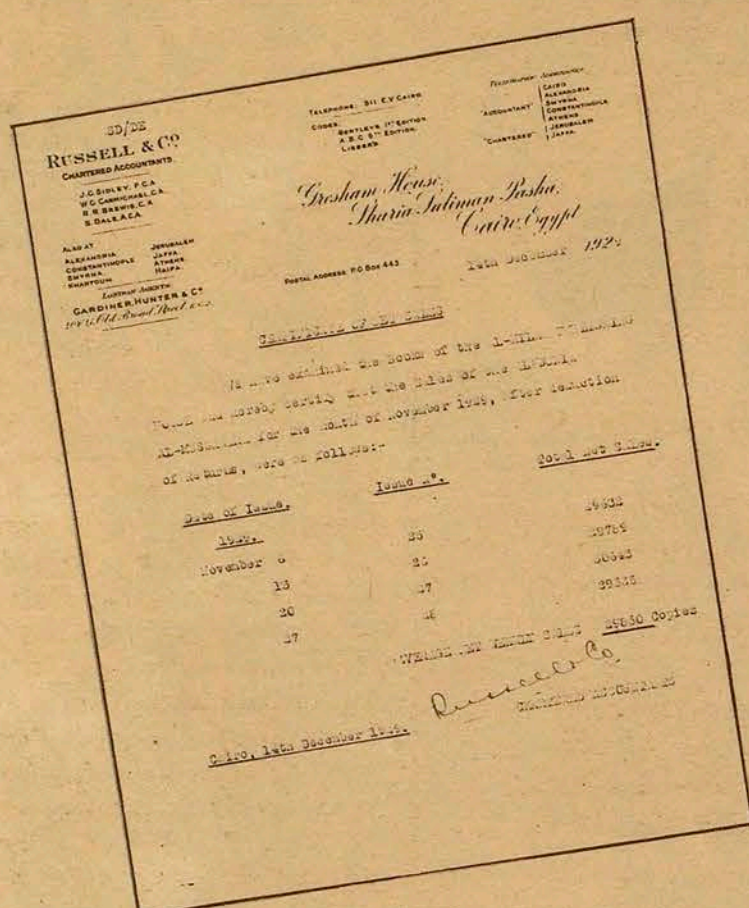 SD/DE
RUSSELL & Co
CHARTERED ACCOUNTANTS
J.G. SIDLEY, F.C.A
W.G. CARMICHAEL, C.A.
R.R. BREWIS, C.A
S. DALE, A.C.A.
ALSO AT
ALEXANDRIA JERUSALEM
CONSTANTINOPLE JAFFA.
SMYRNA ATHENS
KHARTOUM HAIFA.
LONDON AGENTS
GARDINER, HUNTER & Co
Old Broad Street E.C.2.
TELEPHONE: 311 E.V CAIRO
CODES:
BENTLEYS 1st EDITION
A.B.C 5TH EDITION.
LIEBERS.
TELEGRAPHIC ADDRESSES:
"ACCOUNTANT" CAIRO
ALEXANDRIA
SMYRNA
CONSTANTINOPLE
ATHENS
"CHARTERED" JERUSALEM
JAFFA.
Gresham House,
Sharia Suliman Pasha,
Cairo, Egypt
POSTAL ADDRESS: P.O Box 443
14th December 192
CERTIFICATE OF NET SALES
We have examined the Books of the AL-HILAL PUBLISHING
and hereby certify that the Sales of the
for the month of November 1929, after deduction
of Returns, were as follows:-
Date of Issue. Issue No. Total Net Sales.
1929.
November 6 25
13 26
20 27
27 28
AVERAGE NET WEEKLY SALES 29850 Copies
Russell & Co
CHARTERED ACCOUNTANTS
Cairo, 14th December 1929.